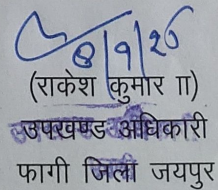 8/9/26
(राकेश कुमार II)
उपखण्ड अधिकारी
फागी जिला जयपुर